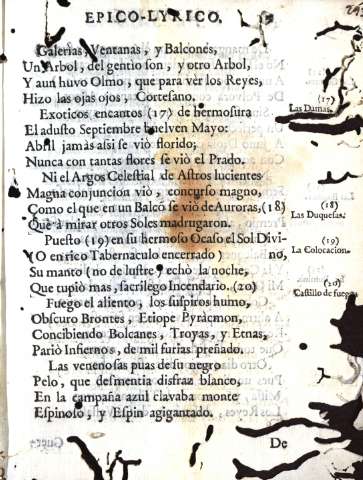 EPICO-LYRICO.
Galerias, Ventanas, y Balcones,
Un Arbol, del gentio son, y otro Arbol,
Y aun huvo Olmo, que para vèr los Reyes,
Hizo las ojas ojos, Cortesano.
Exoticos encantos (17) de hermosura
El adusto Septiembre buelven Mayo:
Abril jamàs assi se viò florido;
Nunca con tantas flores se viò el Prado.
Ni el Argos Celestial de Astros lucientes
Magna conjuncion viò, concurso magno,
Como el que en un Balcõ se viò de Auroras, (18)
Que à mirar otros Soles madrugaron.
Puesto (19) en su hermoso Ocaso el Sol Divi-
(O en rico Tabernaculo encerrado) no,
Su manto (no de lustre) echò la noche,
Que tupiò mas, sacrilego Incendario. (20)
Fuego el aliento, los suspiros humo,
Obscuro Brontes, Etiope Pyràcmon,
Concibiendo Bolcanes, Troyas, y Etnas,
Pariò Infiernos, de mil furias preñado.
Las venenosas puas de su negro
Pelo, que desmentia disfraz blanco,
En la campaña azul clavaba monte
Espinoso, y Espin agigantado.
De
(17)
Las Damas.
(18)
Las Duquesas.
(19)
La Colocacion.
(20)
Castillo de fuego.